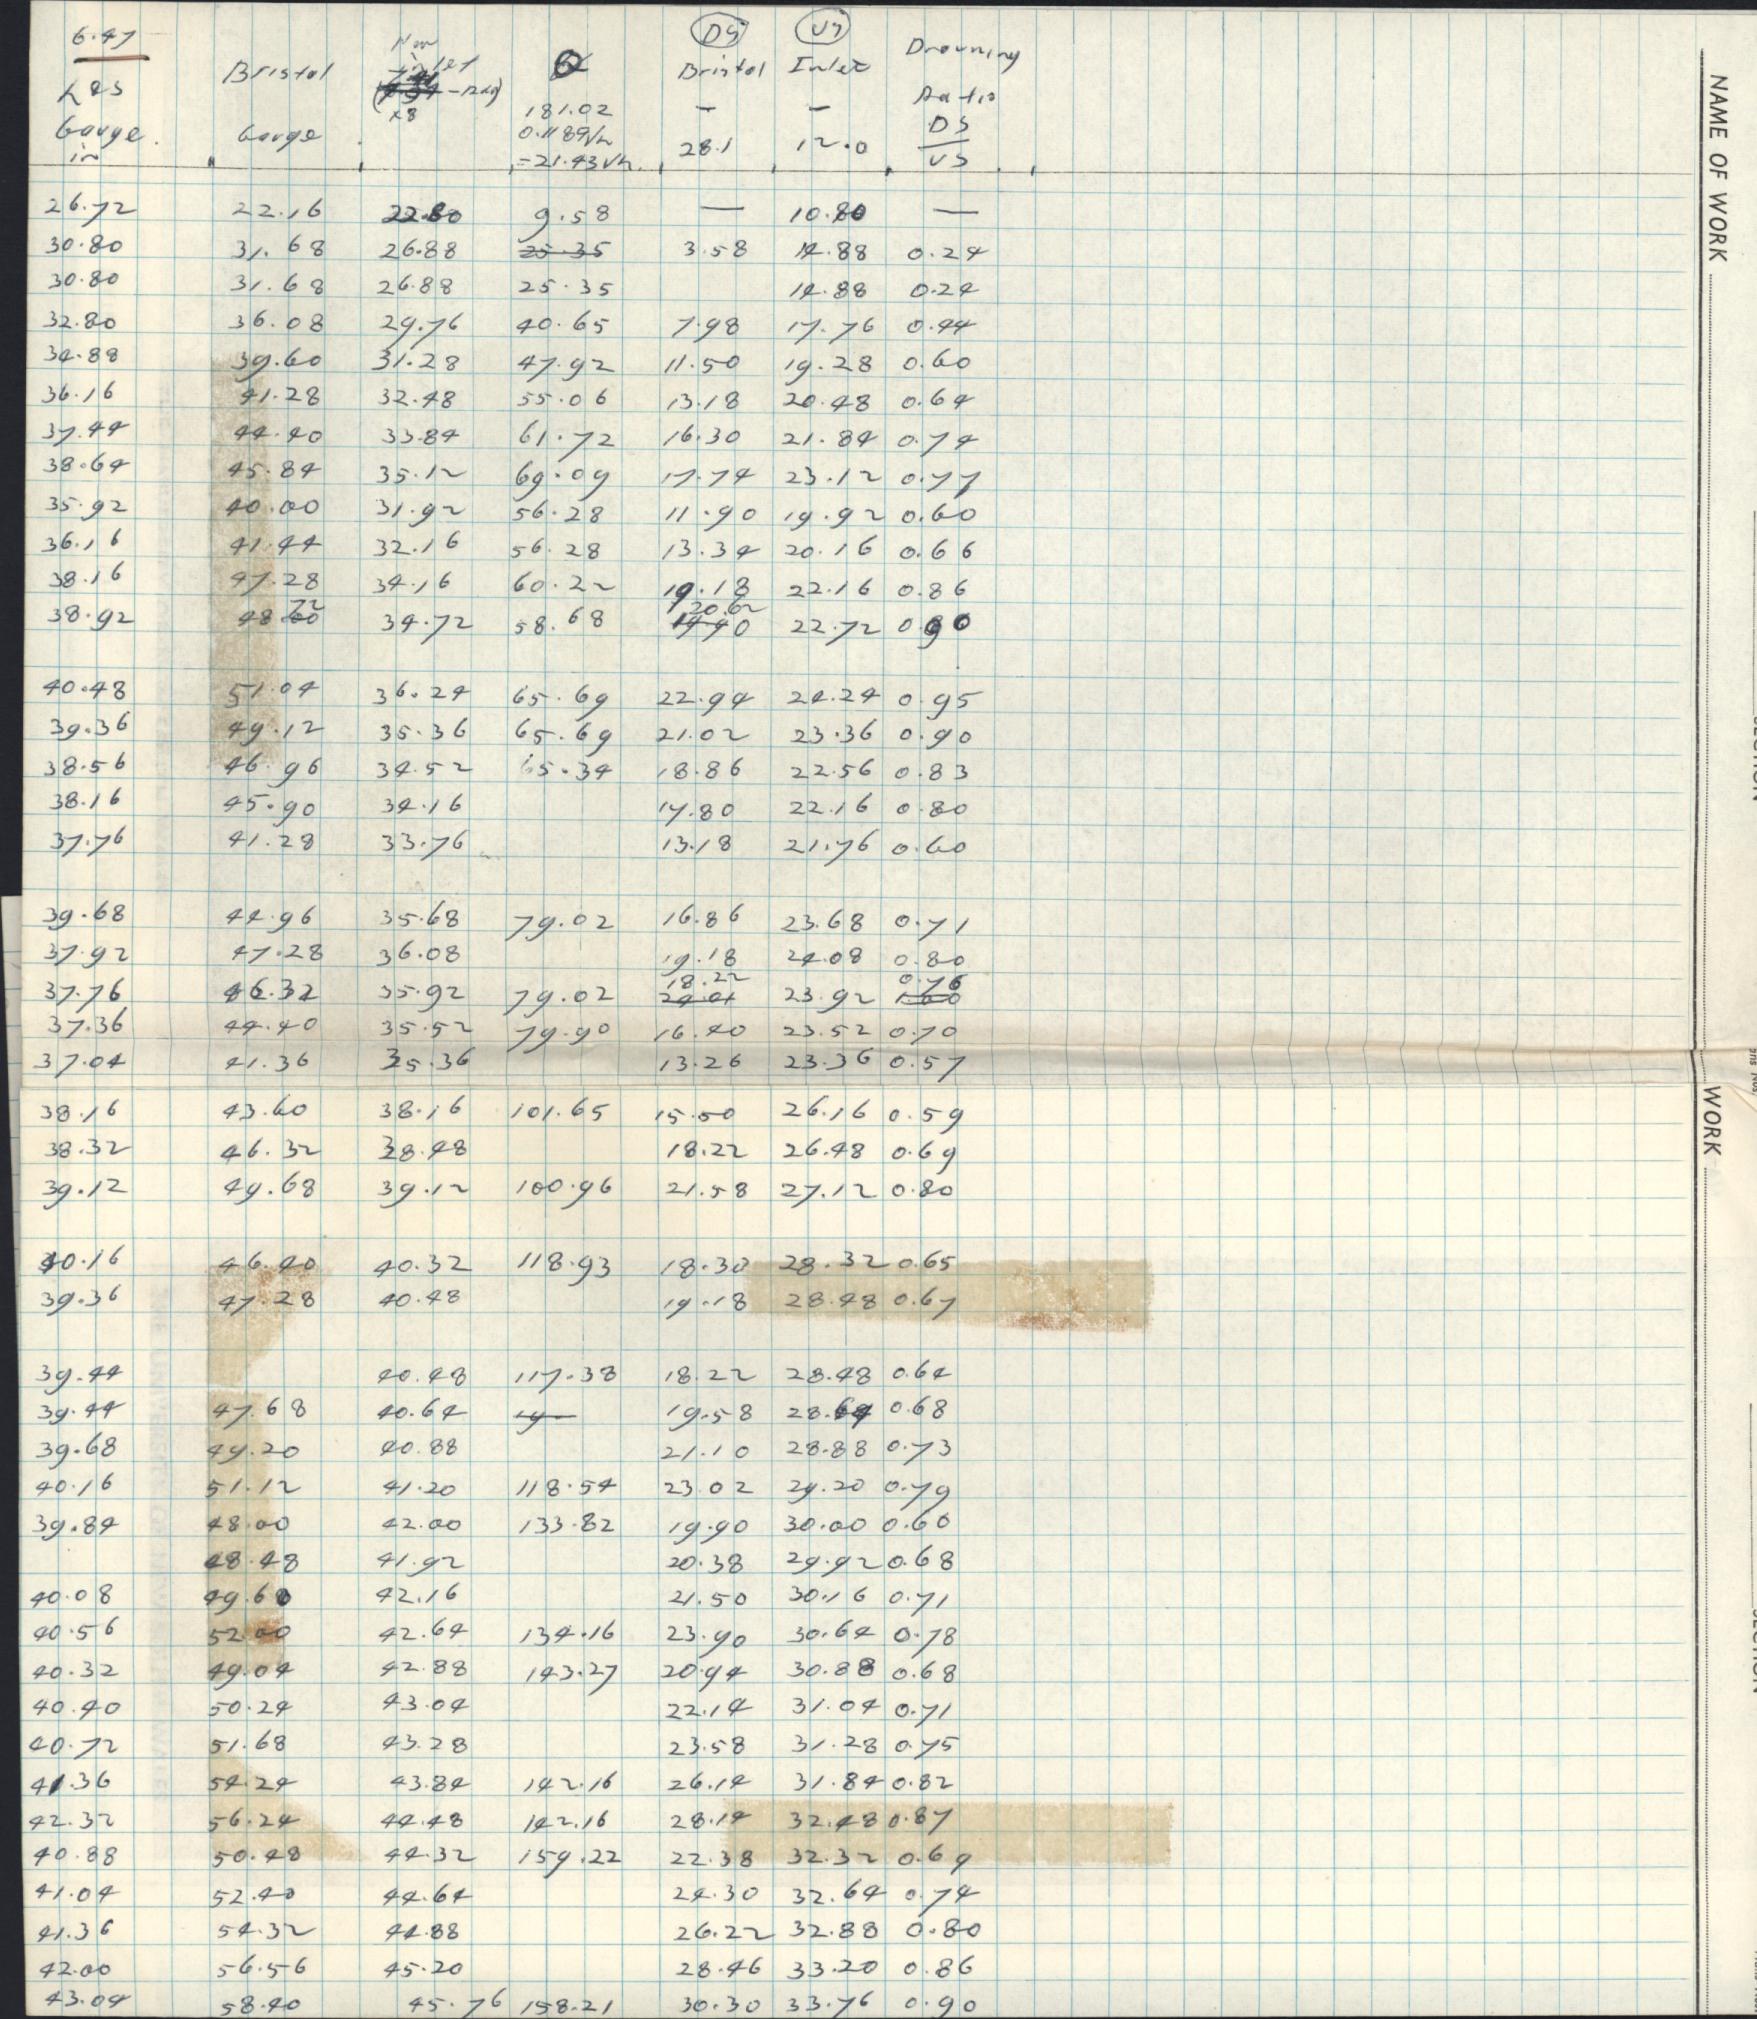 6.47
L&S Gauge in
Bristol Gauge
New inlet x8
Q 181.02 0.1189√h =21.43√h
DS Bristol - 28.1
US Inlet - 12.0
Drowning Ratio DS/US
26.72 22.16 22.80 9.58 — 10.80 —
30.80 31.68 26.88 25.35 3.58 14.88 0.24
30.80 31.68 26.88 25.35 14.88 0.24
32.80 36.08 29.76 40.65 7.98 17.76 0.44
34.88 39.60 31.28 47.92 11.50 19.28 0.60
36.16 41.28 32.48 55.06 13.18 20.48 0.64
37.44 44.40 33.84 61.72 16.30 21.84 0.74
38.64 45.84 35.12 69.09 17.74 23.12 0.77
35.92 40.00 31.92 56.28 11.90 19.92 0.60
36.16 41.44 32.16 56.28 13.34 20.16 0.66
38.16 47.28 34.16 60.22 19.18 22.16 0.86
38.92 48.72 34.72 58.68 20.62 22.72 0.90
40.48 51.04 36.24 65.69 22.94 24.24 0.95
39.36 49.12 35.36 65.69 21.02 23.36 0.90
38.56 46.96 34.52 65.34 18.86 22.56 0.83
38.16 45.90 34.16 17.80 22.16 0.80
37.76 41.28 33.76 13.18 21.76 0.60
39.68 44.96 35.68 79.02 16.86 23.68 0.71
37.92 47.28 36.08 19.18 24.08 0.80
37.76 46.32 35.92 79.02 18.22 23.92 0.76
37.36 44.40 35.52 79.90 16.40 23.52 0.70
37.04 41.36 35.36 13.26 23.36 0.57
38.16 43.60 38.16 101.65 15.50 26.16 0.59
38.32 46.32 38.48 18.22 26.48 0.69
39.12 49.68 39.12 100.96 21.58 27.12 0.80
40.16 46.40 40.32 118.93 18.30 28.32 0.65
39.36 47.28 40.48 19.18 28.48 0.67
39.44 40.48 117.38 18.22 28.48 0.64
39.44 47.68 40.64 19 19.58 28.64 0.68
39.68 49.20 40.88 21.10 28.88 0.73
40.16 51.12 41.20 118.54 23.02 29.20 0.79
39.84 48.00 42.00 133.82 19.90 30.00 0.60
48.48 41.92 20.38 29.92 0.68
40.08 49.60 42.16 21.50 30.16 0.71
40.56 52.00 42.64 134.16 23.90 30.64 0.78
40.32 49.04 42.88 143.27 20.94 30.88 0.68
40.40 50.24 43.04 22.14 31.04 0.71
40.72 51.68 43.28 23.58 31.28 0.75
41.36 54.24 43.84 142.16 26.14 31.84 0.82
42.32 56.24 44.48 142.16 28.14 32.48 0.87
40.88 50.48 44.32 159.22 22.38 32.32 0.69
41.04 52.40 44.64 24.30 32.64 0.74
41.36 54.32 44.88 26.22 32.88 0.80
42.00 56.56 45.20 28.46 33.20 0.86
43.04 58.40 45.76 158.21 30.30 33.76 0.90
NAME OF WORK
WORK